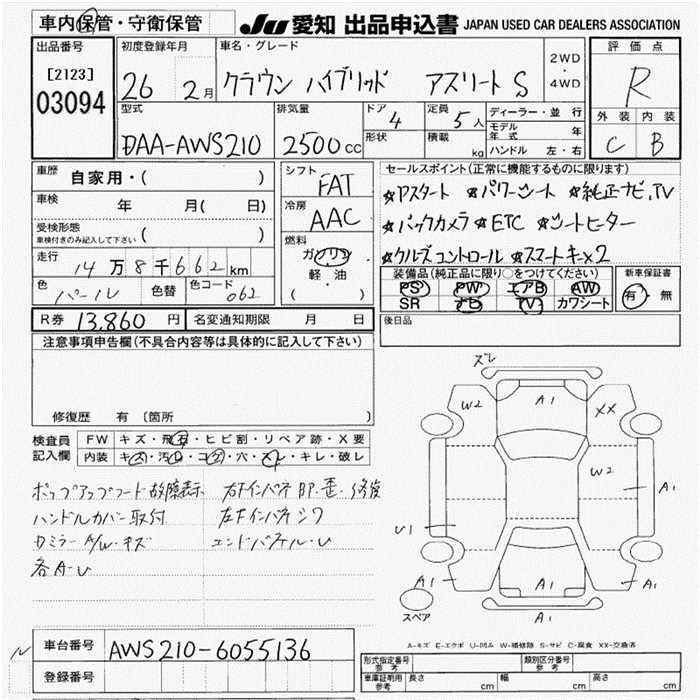 車内保管・守衛保管
JU 愛知 出品申込書 JAPAN USED CAR DEALERS ASSOCIATION
出品番号
[2123]
03094
初度登録年月
26 2月
車名・グレード
クラウン ハイブリッド アスリートS
2WD
・
4WD
評価点
R
外装 内装
C B
型式
DAA-AWS210
排気量
2500cc
ドア
4
形状
定員
5人
積載
kg
ディーラー・並行
モデル年式 年
ハンドル 左・右
車歴 自家用・( )
車検 年 月( 日)
受検形態
車検付きのみ記入して下さい ( )
走行
14万8千662km
色
パール
色替
色コード
062
シフト
FAT
冷房
AAC
燃料
ガソリン
軽油
( ・ )
セールスポイント(正常に機能するものに限ります)
☆Pスタート ☆パワーシート ☆純正ナビ、TV
☆バックカメラ ☆ETC ☆シートヒーター
☆クルーズコントロール ☆スマートキー×2
装備品(純正品に限り○をつけてください)
PS PW エアB AW
SR ナビ TV カワシート
新車保証書
有・無
R券 13,860円
名変通知期限 月 日
後日品
注意事項申告欄(不具合内容等は具体的に記入して下さい)
修復歴 有 〔箇所
検査員記入欄
FW キズ・飛石・ヒビ割・リペア跡・X要
内装 キズ・汚れ・コゲ・穴・スレ・キレ・破レ
ポップアップフード故障表示
ハンドルカバー取付
ドミラー A/W・キズ
各A・U
右Fインパネ BP・歪・修復
左Fインパネ シワ
エンドパネル・U
ズレ
W2
A1
XX
W2
A1
U1
A1
A1
A1
A1
スペア
A-キズ E-エクボ U-凹み W-補修跡 S-サビ C-腐食 XX-交換済
車台番号 AWS210-6055136
登録番号
形式指定番号
参考
類別区分番号
参考
車庫証明用
参考
長さ cm
幅 cm
高さ cm